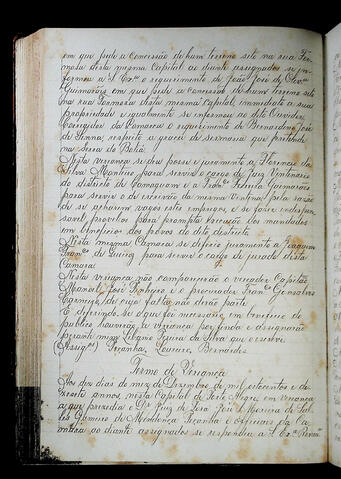 em que pede a concessão de hum terreno sito na rua For-
mosa desta mesma Capital ao diante assignados se in-
formou a S. Exª o requerimento de João José de Olivª
Guimarães em que pede a concessão de hum terreno sito
na rua Formosa desta mesma Capital, immediato a sua
propriedade e igualmente se informou ao dito Ouvidor,
Corregedor da Comarca o requerimento de Bernardino José
de Senna, respeito a graça de sesmaria que pretende
na serra do
Nesta vereança se deu posse e juramento a Florencio da
Silva Monteiro para servir o cargo de Juiz Ventenario
do districto de Camaquam e a Franco Guimarães
para servir o de escrivão da mesma Vintena pela razão
de se acharem vagos estes empregos, e se fazer indispen-
savel provelos para prompta execução dos mandados
em beneficio dos povos do dito districto.
Nesta mesma Camara se deferio juramento a Joaquim
Franco de para servir o cargo de jurado desta
Camara.
Nesta vereança não compareceu o vereador Capitão
Manoel José e o procurador Franco Gonsalves
Carneiro, de cujo falta não derão parte
E deferindo se o que foi necessario em beneficio do
publico houverão a vereança por finda e assignarão
perante mim Libano Pereira da Silva que o escrevi
(Assigos) Peçanha, Loureiro, Bernardes.
Termo de Vereança
Aos dez dias do mez de Dezembro de mil oitocentos e de-
zacete annos, nesta Capital de Porto Alegre, em vereança
a que prezedio o Dr. Juiz de Fora José Moreira de Sal-
les de Mendonça Peçanha e officiais da Ca-
mara ao diante assignados se respondeu a S. Exª